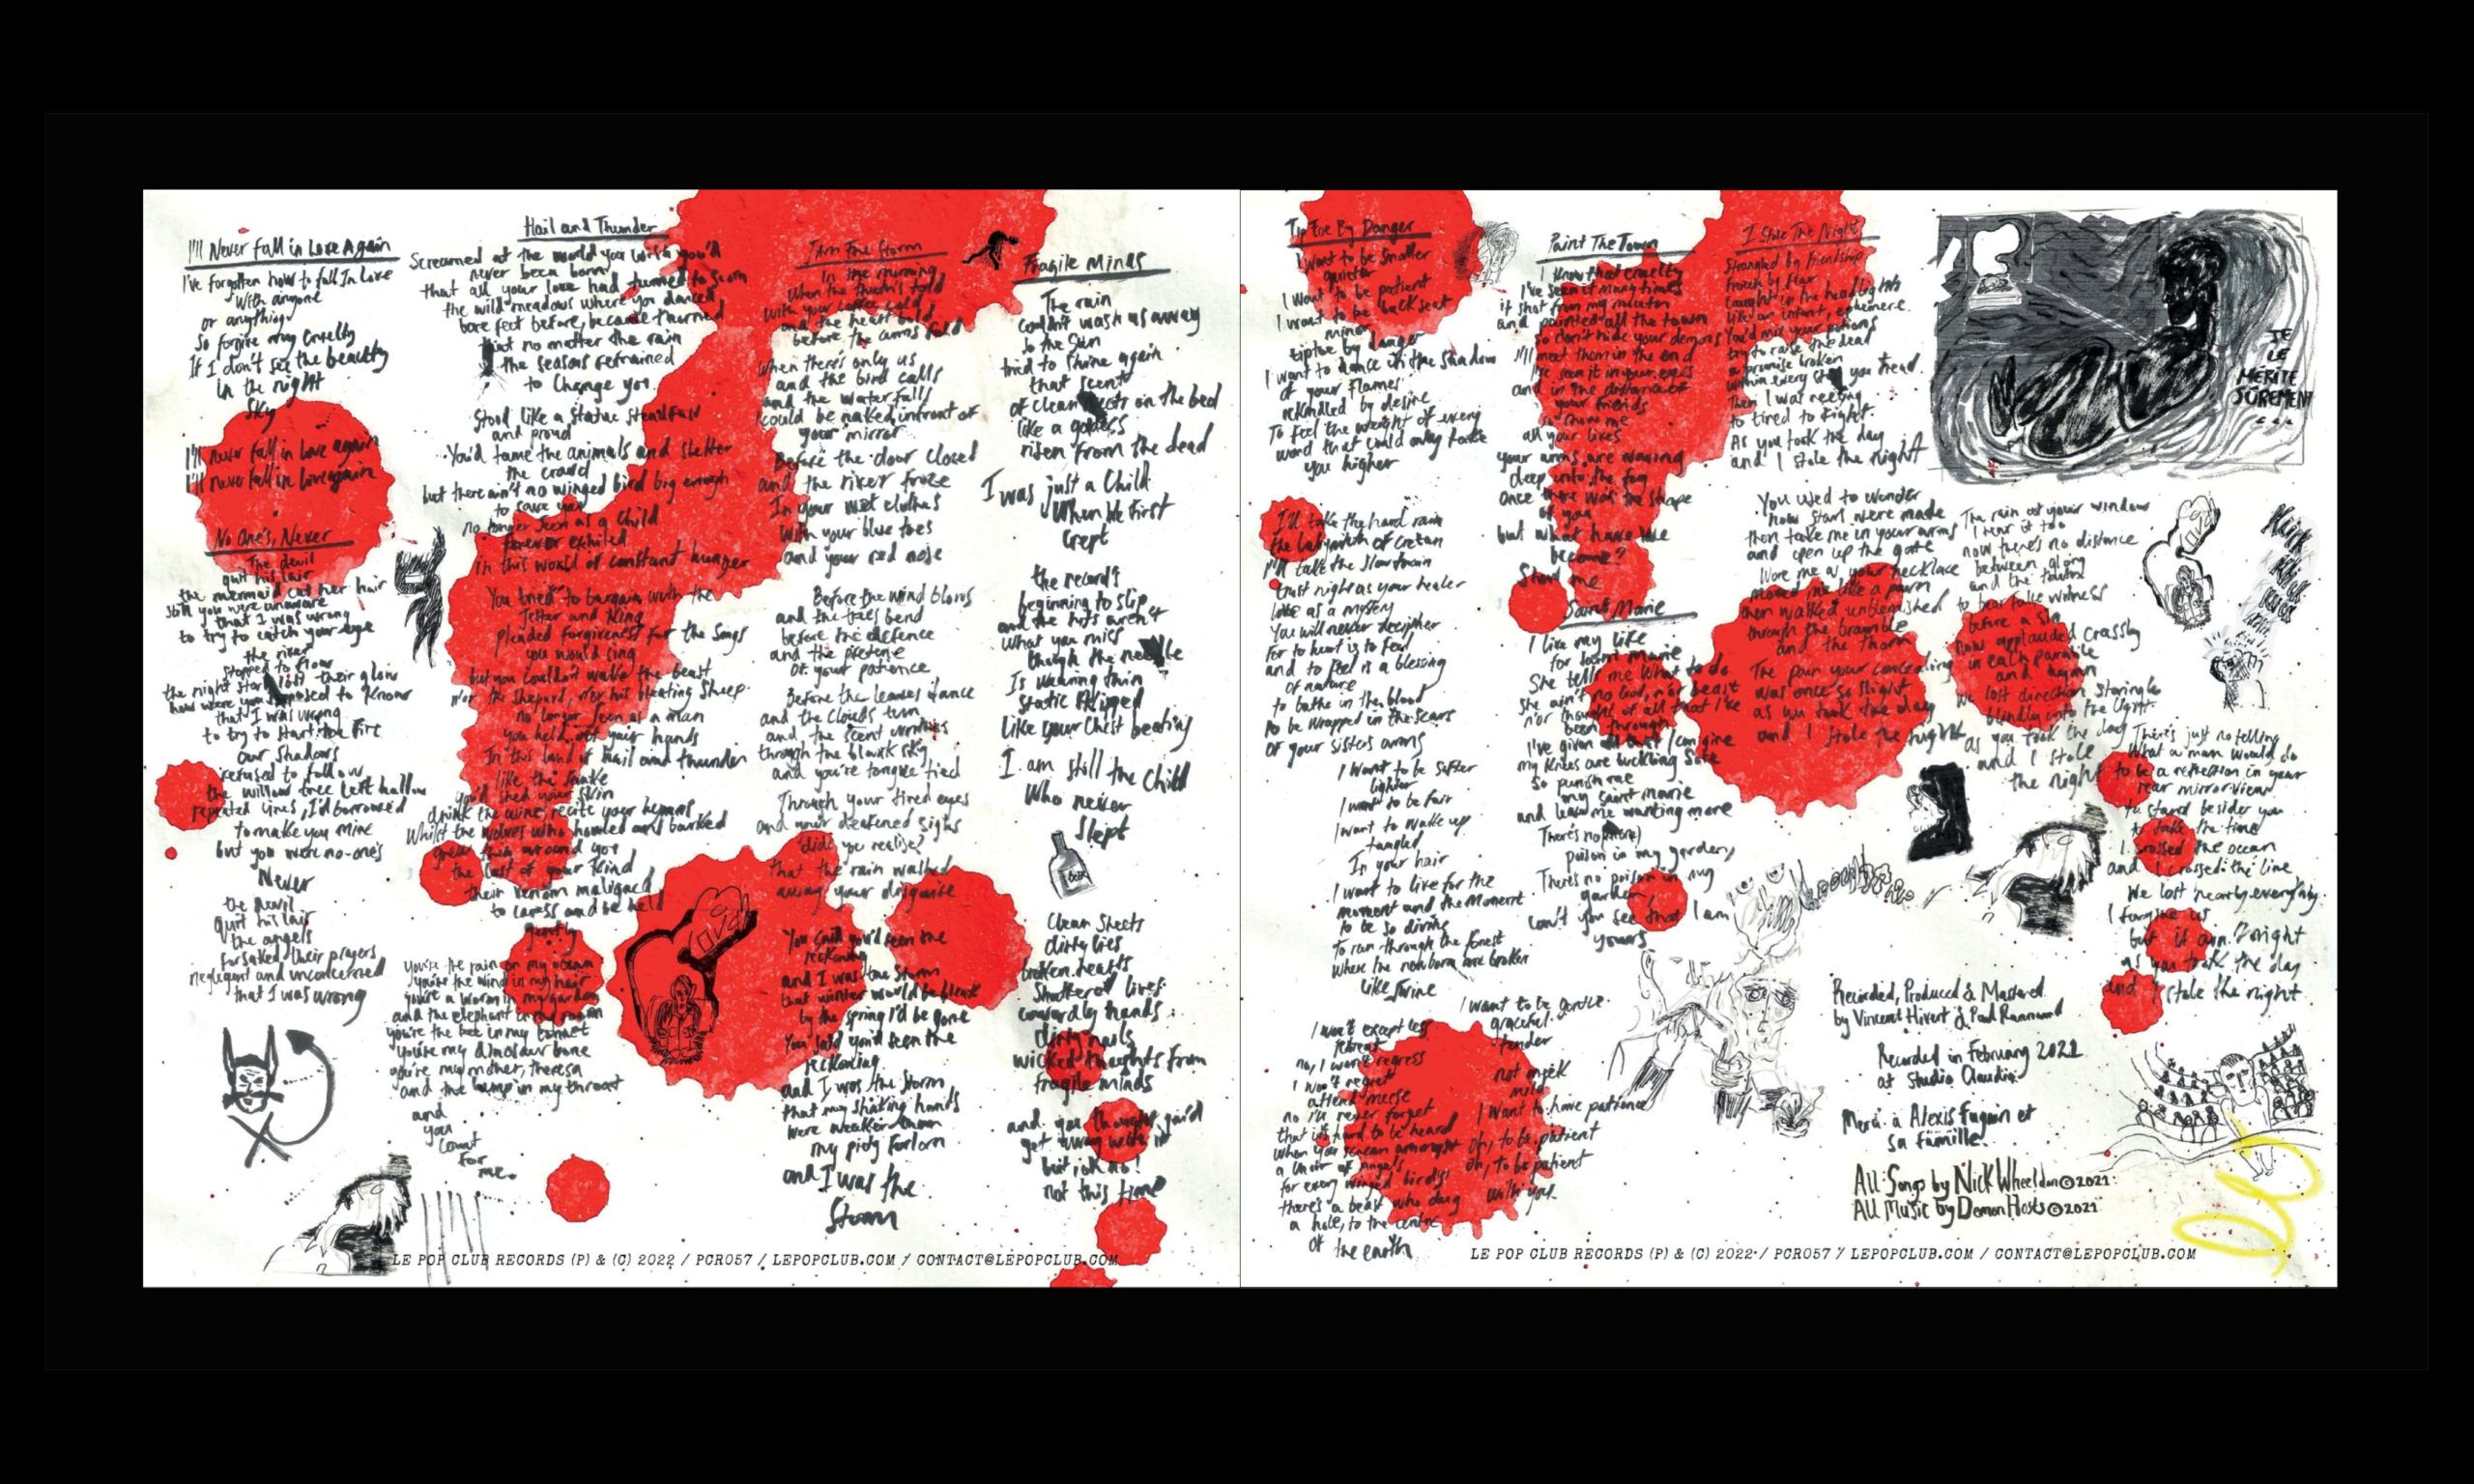 I'll Never Fall in Love Again
I've forgotten how to fall In Love
With anyone
or anything
So forgive my Cruelty
If I don't see the beauty
In the night
Sky
I'll never fall in love again
I'll never fall in love again
No One's, Never
The devil
quit his lair
the mermaid cut her hair
Still you were unaware
that I was wrong
to try to catch your eye
the river
stopped to flow
the night stars lost their glow
how were you supposed to know
that I was wrong
to try to start the fire
Our Shadows
refused to follow
the willow tree left hollow
repeated lines, I'd borrowed
to make you mine
but you were no-one's
Never
the devil
quit his lair
the angels
forsaked their prayers
negligent and unconcerned
that I was wrong
Hail and Thunder
Screamed at the world you wish you'd
never been born
that all your love had turned to scorn
the wild meadows where you danced
bare feet before, became thorned
that no matter the rain
the seasons refrained
to Change you.
Stood like a Statue Steadfast
and proud
You'd tame the animals and shelter
the crowd
but there ain't no winged bird big enough
to save you
no longer seen as a Child
forever exhiled
In this world of constant hunger
You tried to bargain with the
Jester and King
pleaded forgiveness for the Songs
you would sing
but you couldn't wake the beast
n'or the Shepard, n'or his bleating Sheep
no longer seen as a man
you held out your hands
In this land of hail and thunder
like the Snake
you'd shed your Skin
drink the wine, recite your hymns
Whilst the wolves who howled and barked
grew thin around you
the last of your kind
their venom maligned
to caress and be held
gently
You're the rain on my ocean
you're the wind in my hair
you're a worm in my garden
and the elephant in my room
you're the bee in my bonnet
you're my dinosaur bone
you're my mother, theresa
and the lump in my throat
and
you
Count
for
me.
I Am The Storm
In the morning
When the truth's told
With your coffee cold
and the heart bold
before the arms fold
When there's only us
and the bird calls
and the waterfalls
I could be naked infront of
your mirror
Before the door closed
and the river froze
In your wet clothes
With your blue toes
and your red nose
Before the wind blows
and the trees bend
before the defence
and the pretense
Of your patience
Before the leaves dance
and the Clouds turn
and the scent
through the blank sky
and you're tongue tied
Through your tired eyes
and your deafened sighs
did you realise?
that the rain washed
away your disguise
You said you'd seen the
reckoning
and I was the Storm
that winter would be bleak
by the spring I'd be gone
You said you'd seen the
reckoning
and I was the Storm
that my shaking hands
were weaker than
my pity forlorn
and I was the
Storm
Fragile Minds
The rain
couldn't wash us away
So the Sun
tried to shine again
that scent
of clean sheets on the bed
like a goddess
risen from the dead
I was just a Child
When We first
Crept
the record's
beginning to slip
and the hits aren't
What you miss
though the needle
Is wearing thin
Static Skipped
Like your Chest beating
I am still the Child
Who never
Slept
Clean Sheets
dirty lies
broken hearts
Shattered lives
cowardly hands
dirty nails
wicked thoughts from
fragile minds
and you thought you'd
get away with it
but oh no!
not this time
LE POP CLUB RECORDS (P) & (C) 2022 / PCR057 / LEPOPCLUB.COM / CONTACT@LEPOPCLUB.COM
Tip Toe By Danger
I want to be smaller
quieter
I want to be patient
I want to be back seat
minor
tiptoe by danger
I want to dance in the shadow
of your flames
rekindled by desire
To feel the weight of every
word that could only take
you higher
I'll take the hard rain
the labyrinth of Cretan
I'll take the slow train
trust night as your healer
love as a mystery
You will never decipher
For to hurt is to feel
and to feel is a blessing
Of nature
to bathe in the blood
to be wrapped in the scars
of your sisters arms
I Want to be Softer
lighter
I want to be fair
I want to wake up
tangled
In your hair
I want to live for the
moment and the Moment
to be so divine
To run through the forest
Where the newborn are broken
like twine
I want to be gentle
graceful
tender
not meek
mild
I want to have patience
oh, to be patient
oh, to be patient
with you
I won't except less
retreat
no, I won't regress
I won't regret
no I'll never forget
that it's hard to be heard
When you scream amongst
a choir of angels
for every winged birdy
there's a beast who dug
a hole, to the centre
Of the earth
Paint The Town
I know that cruelty
I've seen it many times
it shot from my mouth
and painted all the town
So don't hide your demons
I'll meet them in the end
I've seen it in your eyes
and in the distance of
your friends
so show me
all your lies
your arms are waving
deep into the fog
Once there was the shape
of you
but what have we
become?
Show me
Saint Marie
I live my life
for Saint Marie
She tells me what to do
she ain't no God, n'or beast
n'or thought of all that I've
been through
I've given all that I can give
my knees are buckling sore
So punish me
my saint marie
and leave me wanting more
There's no (more)
poison in my garden
There's no poison in my
garden
can't you see that I am
yours
I Stole The Night
Strangled by friendship
frozen by fear
Caught in the headlights
like an infant, ephemere
You'd mix your potions
try to raise the dead
a promise broken
Within every step you tread
Then I was
to tired to fight
As you took the day
and I stole the night
You used to wonder
how stars were made
then take me in your arms
and open up the gate
Wore me as your necklace
moved me like a pawn
then walked unblemished
through the bramble
and the thorn
The pain your concealing
was once so slight
as you took the day
and I stole the night
The rain at your window
I hear it too
now there's no distance
between glory
and the truth
to bear false witness
before a sin
now applauded crassly
in each parable
and again
We lost direction, staring
blindly into the light
as you took the day
and I stole
the night
There's just no telling
What a man would do
to be a reflection in your
rear mirror view
to stand besider you
to take the time
I crossed the ocean
and I crossed the line
We lost nearly everything
I forgive us
but it ain't right
as you took the day
and I stole the night
JE
LE
MÉRITE
SÛREMENT
...
Recorded, Produced & Mastered
by Vincent Hivert & Paul Rannaud
Recorded in February 2021
at Studio Claudio
Merci à Alexis Fugain et
sa famille
All Songs by Nick Wheeldon © 2021
All Music by Demon Hosts © 2021
LE POP CLUB RECORDS (P) & (C) 2022 / PCR057 / LEPOPCLUB.COM / CONTACT@LEPOPCLUB.COM